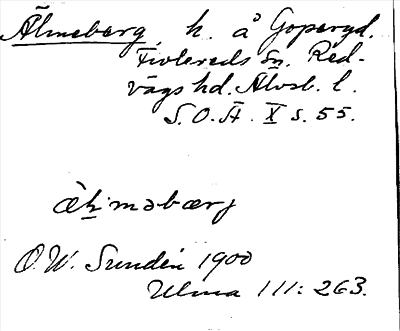 Älmeberg, h. å Goperyd.
Tivlereds Sn. Red-
vägs hd. Älvsb. l.
S. O. Ä. X s. 55.
ǟḷ·məbærj
O. W. Sundén 1900
Ulma 111: 263.